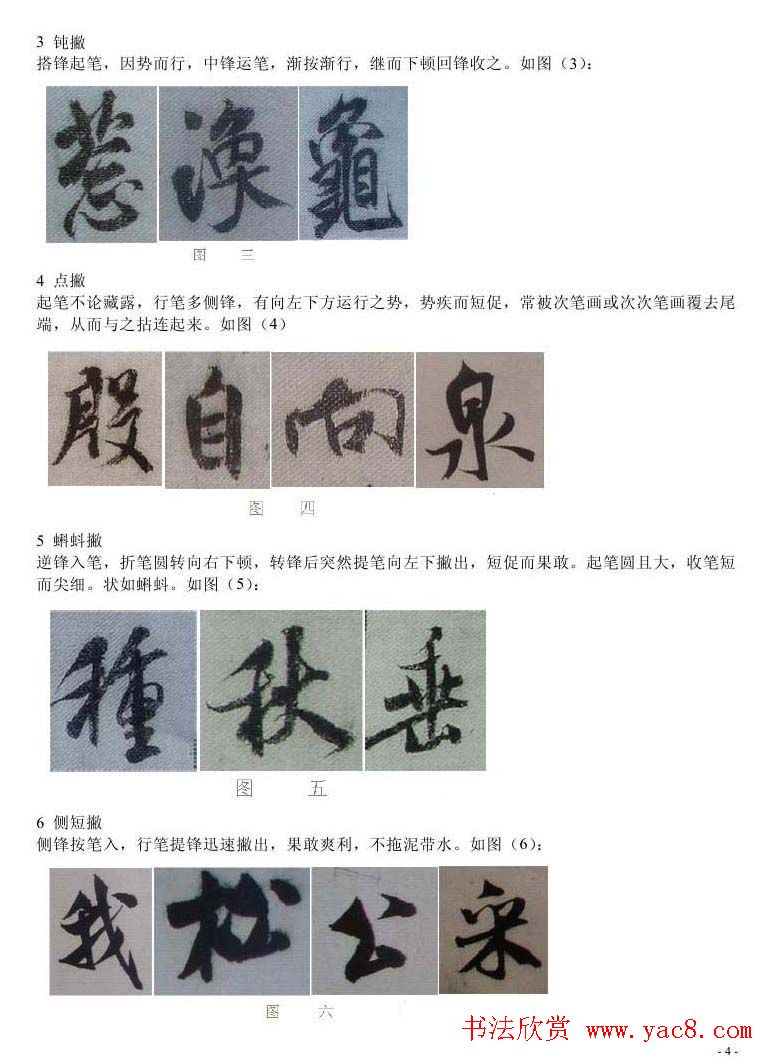 3 钝撇
搭锋起笔，因势而行，中锋运笔，渐按渐行，继而下顿回锋收之。如图（3）：
渙 龜
图 三
4 点撇
起笔不论藏露，行笔多侧锋，有向左下方运行之势，势疾而短促，常被次笔画或次次笔画覆去尾
端，从而与之拈连起来。如图（4）
殷 自 向 泉
图 四
5 蝌蚪撇
逆锋入笔，折笔圆转向右下顿，转锋后突然提笔向左下撇出，短促而果敢。起笔圆且大，收笔短
而尖细。状如蝌蚪。如图（5）：
種 秋 垂
图 五
6 侧短撇
侧锋按笔入，行笔提锋迅速撇出，果敢爽利，不拖泥带水。如图（6）：
我 松 公 采
图 六
书法欣赏 www.yac8.com
- 4 -